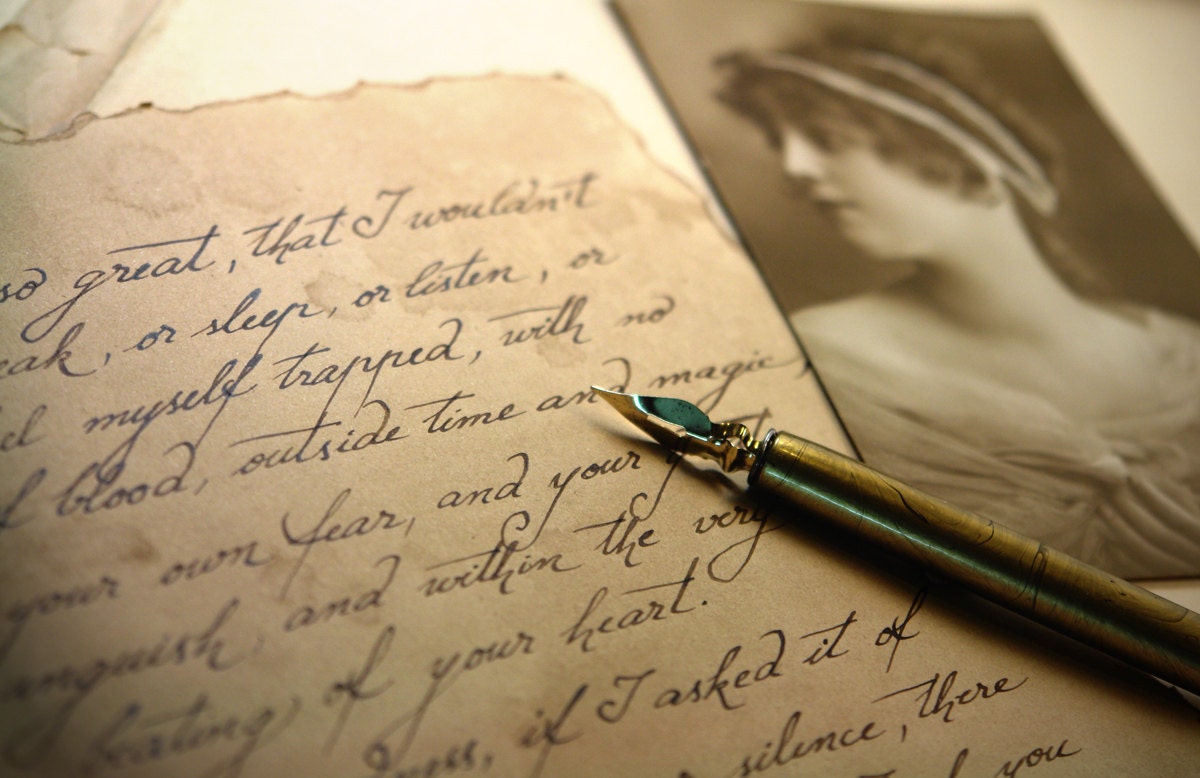 so great, that I wouldn't
or sleep, or listen, or
myself trapped, with no
blood, outside time and magic,
your own fear, and your
anguish, and within the very
beating of your heart.
if I asked it of
silence, there
you